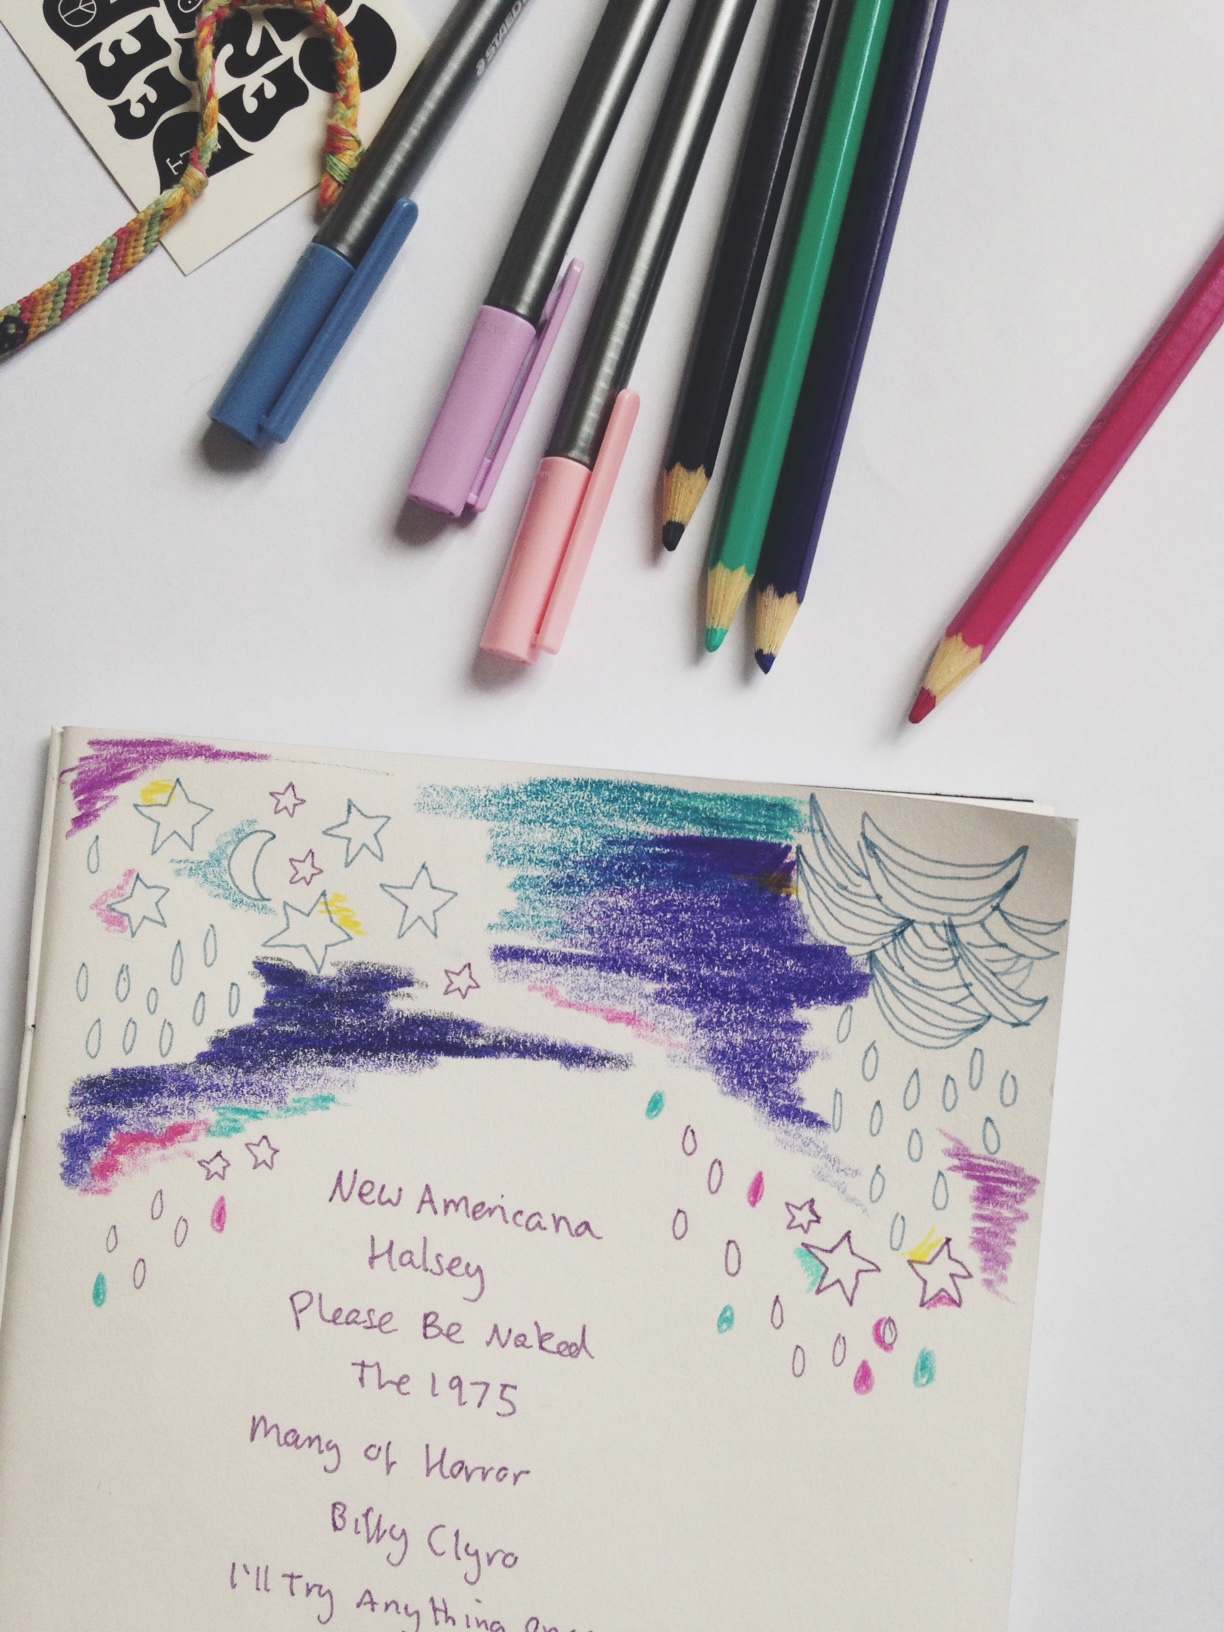 STAED
New Americana
Halsey
Please Be Naked
The 1975
Many of Horror
Biffy Clyro
I'll Try Anything